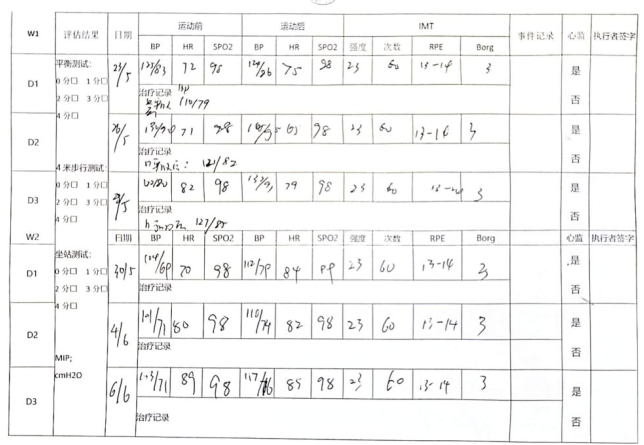 W1 评估结果 日期 运动前 运动后 IMT 事件记录 心监 执行者签字
BP HR SPO2 BP HR SPO2 强度 次数 RPE Borg
D1 平衡测试: 23/5 123/83 72 98 75 98 23 60 13-14 3 是
0分口 1分口
2分口 3分口 治疗记录 BP 110/79 否
4分口
D2 71 98 98 23 60 13-14 3 是
治疗记录 121/82 否
4米步行测试:
D3 0分口 1分口 82 98 79 98 23 60 3 是
2分口 3分口
4分口 治疗记录 127/85 否
W2 日期 BP HR SPO2 BP HR SPO2 强度 次数 RPE Borg 心监 执行者签字
D1 坐站测试: 30/5 70 98 112/79 84 23 60 13-14 3 是
0分口 1分口
2分口 3分口 治疗记录 否
4分口
D2 4/6 101/71 80 98 110/74 82 98 23 60 13-14 3 是
治疗记录 否
MIP;
cmH2O
D3 6/6 89 98 85 98 23 60 13-14 3 是
治疗记录 否